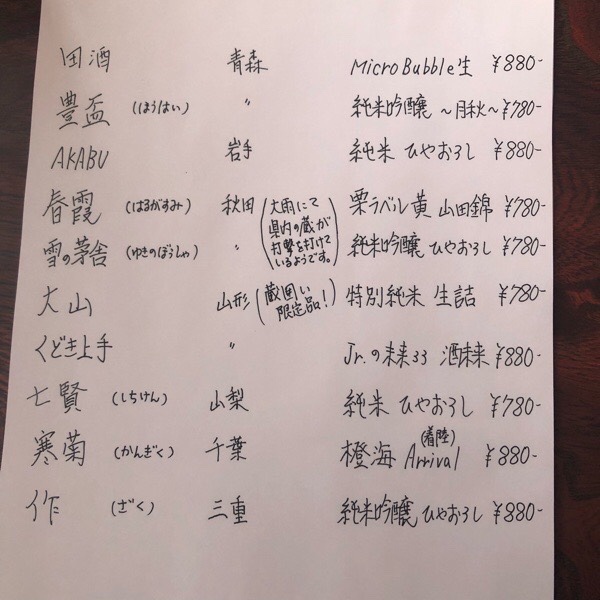 田酒 青森 Micro Bubble生 ¥880-
豊盃 (ほうはい) 〃 純米吟醸 ～月秋～ ¥780-
AKABU 岩手 純米 ひやおろし ¥880-
春霞 (はるがすみ) 秋田 栗ラベル 黄 山田錦 ¥780-
雪の茅舎 (ゆきのぼうしゃ) 〃 純米吟醸 ひやおろし ¥780-
(大雨にて
県内の蔵が
打撃を打けて
いるようです。)
大山 山形 (蔵囲い
限定品!) 特別純米 生詰 ¥780-
くどき上手 〃 Jr.の未来33 酒未来 ¥880-
七賢 (しちけん) 山梨 純米 ひやおろし ¥780-
寒菊 (かんぎく) 千葉 橙海 Arrival (着陸) ¥880-
作 (ざく) 三重 純米吟醸 ひやおろし ¥880-